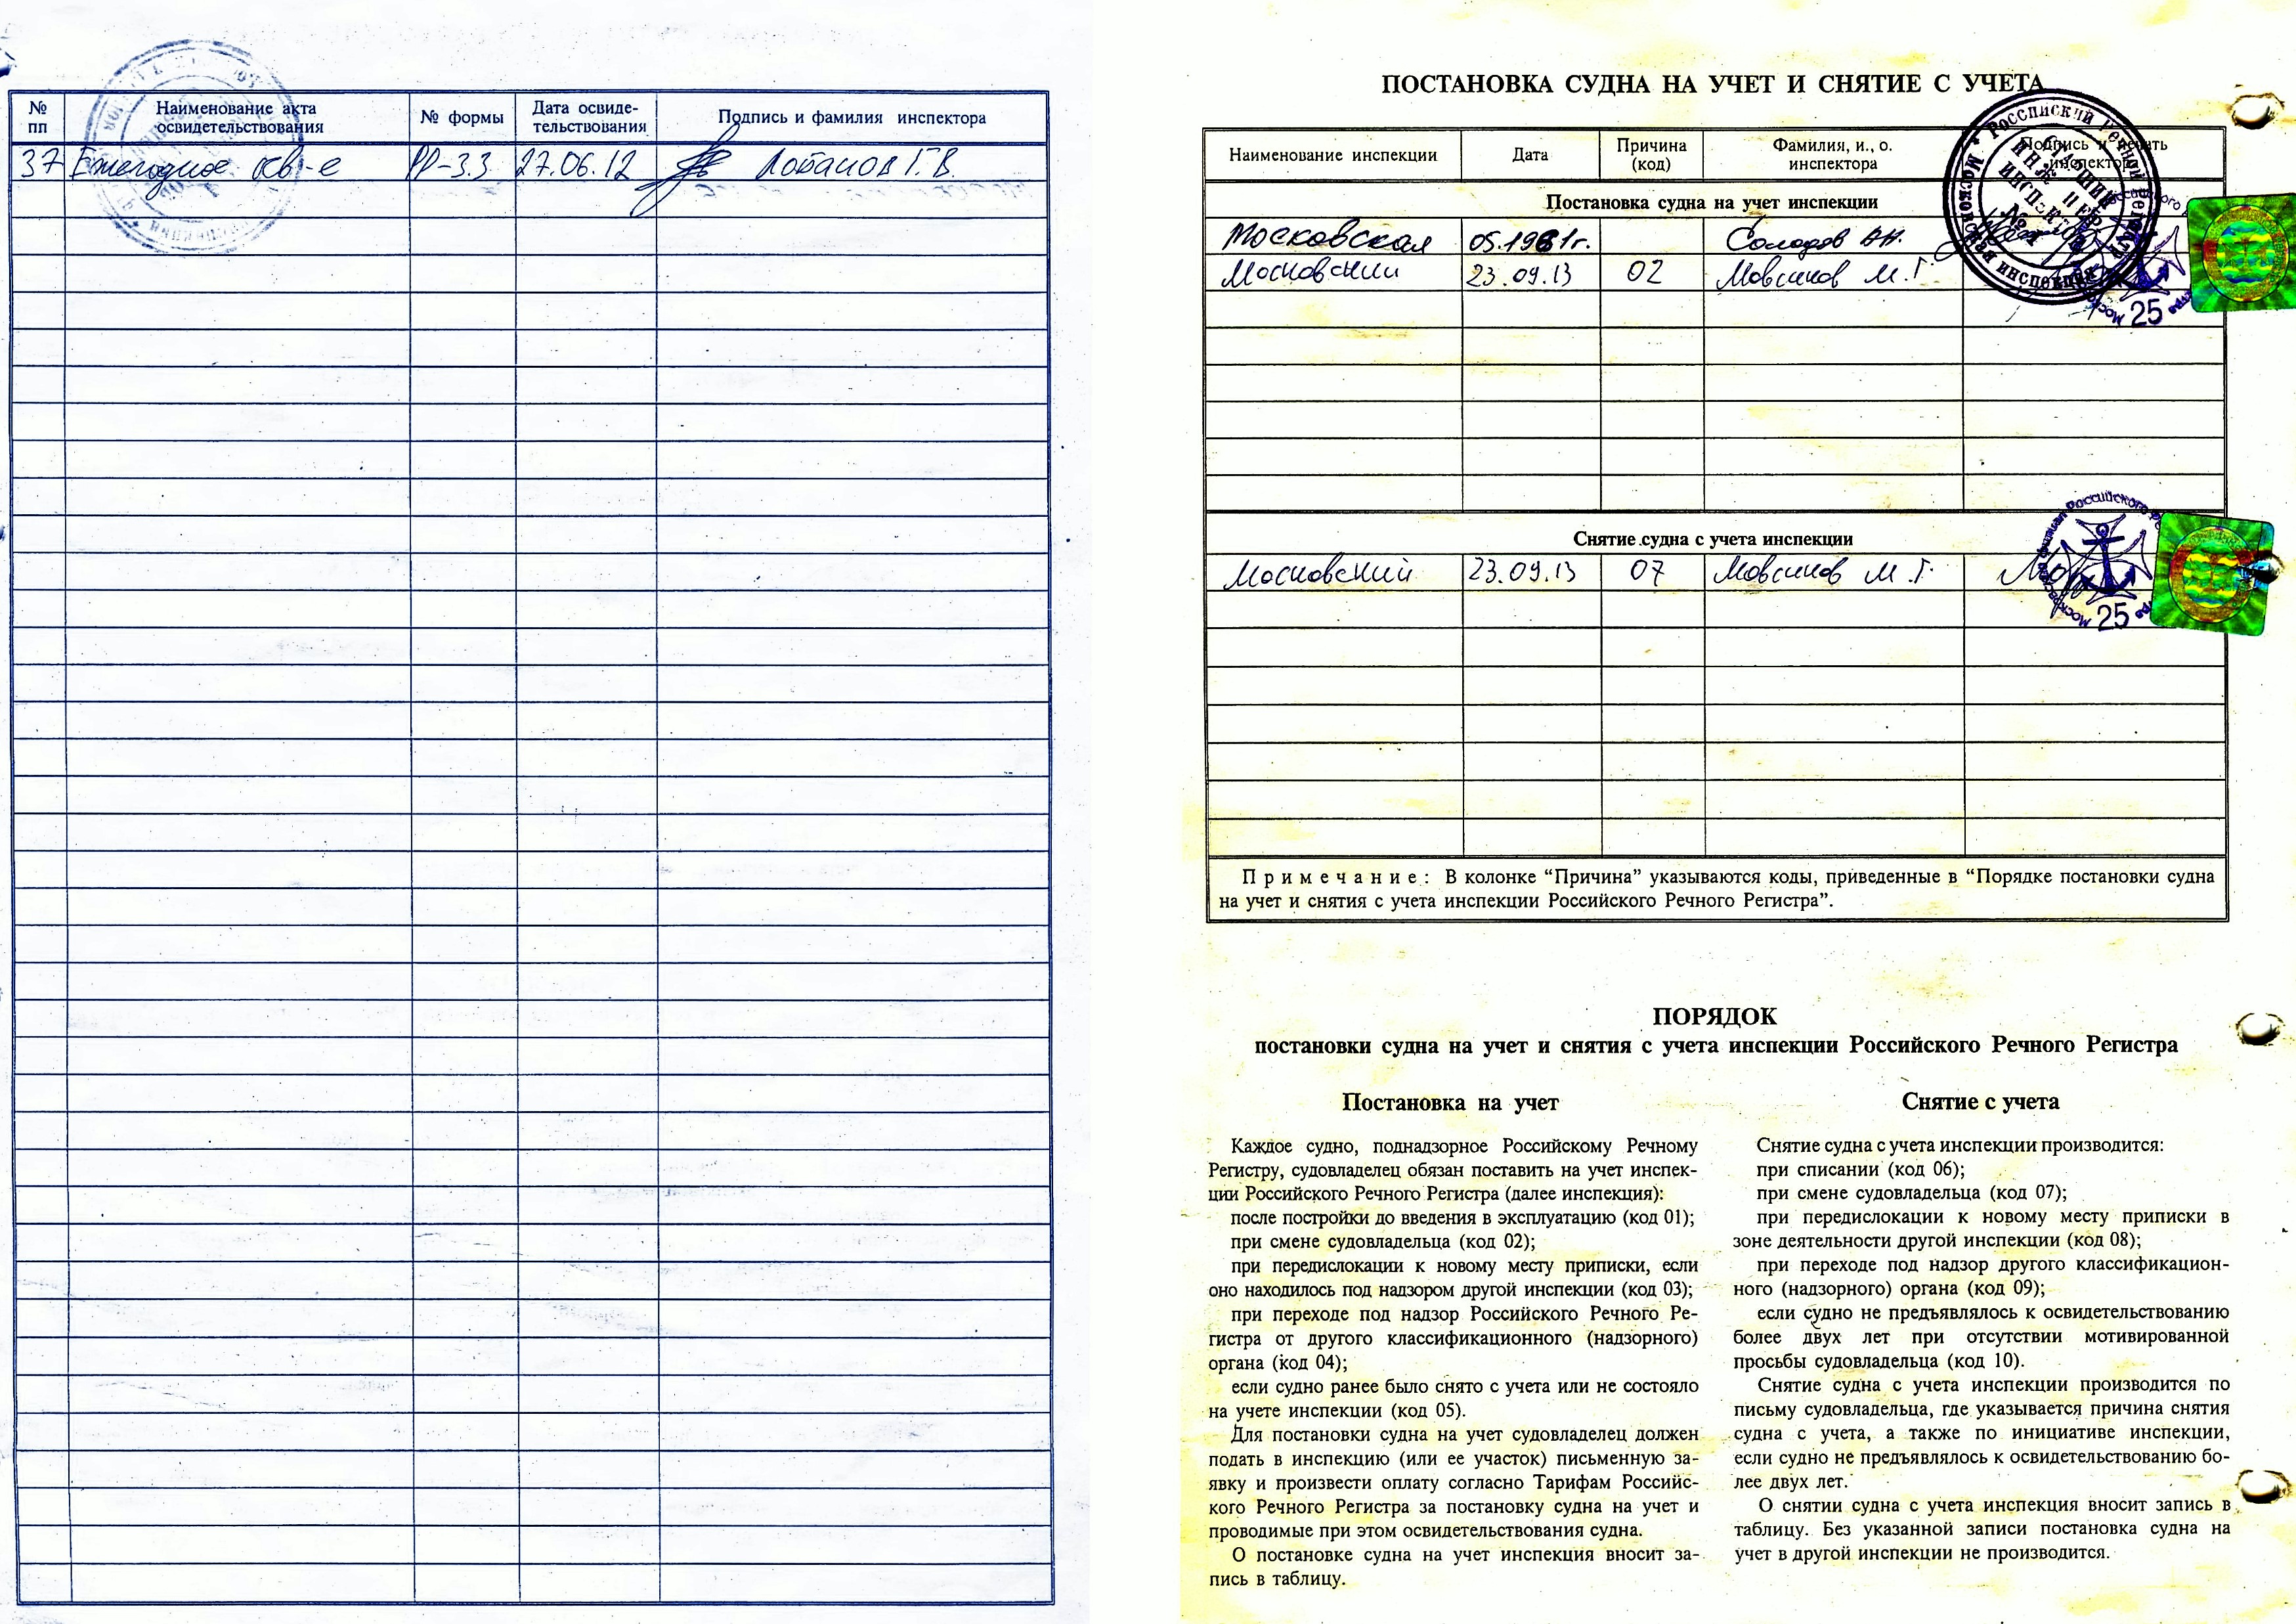 № пп
Наименование акта освидетельствования
№ формы
Дата освиде-
тельствования
Подпись и фамилия инспектора
37 Ежегодное осв-е РР-3.3 27.06.12 Лобанов Г.В.
ПОСТАНОВКА СУДНА НА УЧЕТ И СНЯТИЕ С УЧЕТА
Наименование инспекции
Дата
Причина (код)
Фамилия, и., о. инспектора
Подпись и печать инспектора
Постановка судна на учет инспекции
Московская 05.1981г. Солодов
Московский 23.09.13 02 Мовсиков М.Г.
25
Снятие судна с учета инспекции
Московский 23.09.13 07 Мовсиков М.Г.
25
Примечание: В колонке “Причина” указываются коды, приведенные в “Порядке постановки судна
на учет и снятия с учета инспекции Российского Речного Регистра”.
ПОРЯДОК
постановки судна на учет и снятия с учета инспекции Российского Речного Регистра
Постановка на учет
Каждое судно, поднадзорное Российскому Речному
Регистру, судовладелец обязан поставить на учет инспек-
ции Российского Речного Регистра (далее инспекция):
после постройки до введения в эксплуатацию (код 01);
при смене судовладельца (код 02);
при передислокации к новому месту приписки, если
оно находилось под надзором другой инспекции (код 03);
при переходе под надзор Российского Речного Ре-
гистра от другого классификационного (надзорного)
органа (код 04);
если судно ранее было снято с учета или не состояло
на учете инспекции (код 05).
Для постановки судна на учет судовладелец должен
подать в инспекцию (или ее участок) письменную за-
явку и произвести оплату согласно Тарифам Российс-
кого Речного Регистра за постановку судна на учет и
проводимые при этом освидетельствования судна.
О постановке судна на учет инспекция вносит за-
пись в таблицу.
Снятие с учета
Снятие судна с учета инспекции производится:
при списании (код 06);
при смене судовладельца (код 07);
при передислокации к новому месту приписки в
зоне деятельности другой инспекции (код 08);
при переходе под надзор другого классификацион-
ного (надзорного) органа (код 09);
если судно не предъявлялось к освидетельствованию
более двух лет при отсутствии мотивированной
просьбы судовладельца (код 10).
Снятие судна с учета инспекции производится по
письму судовладельца, где указывается причина снятия
судна с учета, а также по инициативе инспекции,
если судно не предъявлялось к освидетельствованию бо-
лее двух лет.
О снятии судна с учета инспекция вносит запись в
таблицу. Без указанной записи постановка судна на
учет в другой инспекции не производится.